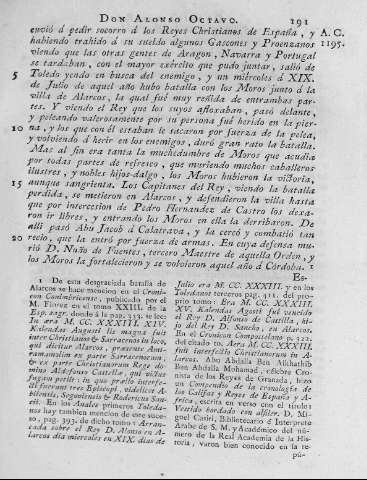 DON ALONSO OCTAVO. 191
envió á pedir socorro á los Reyes Christianos de España, y A. C.
habiendo trahido á su sueldo algunos Gascones y Proenzanos 1195.
viendo que las otras gentes de Aragon, Navarra y Portugal
se tardaban, con el mayor exército que pudo juntar, salió de
5 Toledo yendo en busca del enemigo, y un miércoles á XIX.
de Julio de aquel año hubo batalla con los Moros junto á la
villa de Alarcos, la qual fué muy reñida de entrambas par-
tes. Y viendo el Rey que los suyos afloxaban, pasó delante,
y peleando valerosamente por su persona fué herido en la pier-
10 na, y los que con él estaban le sacaron por fuerza de la pelea,
y volviendo á herir en los enemigos, duró gran rato la batalla.
Mas al fin era tanta la muchedumbre de Moros que acudia
por todas partes de refresco, que muriendo muchos caballeros
ilustres, y nobles hijos-dalgo, los Moros hubieron la victoria,
15 aunque sangrienta. Los Capitanes del Rey, viendo la batalla
perdida, se metieron en Alarcos, y defendieron la villa hasta
que por intercesion de Pedro Fernandez de Castro los dexa-
ron ir libres, y entrando los Moros en ella la derribaron. De
allí pasó Abu Jacob á Calatrava, y la cercó y combatió tan
20 recio, que la entró por fuerza de armas. En cuya defensa mu-
rió D. Nuño de Fuentes, tercero Maestre de aquella Orden, y
los Moros la fortalecieron y se volvieron aquel año á Córdoba. 1
Es-
1 De esta desgraciada batalla de
Alarcos se hace mencion en el Cronicon
Conimbricense, publicado por el
M. Florez en el tomo XXIII. de la
Esp. sagr. donde á la pag. 333. se lee
In era M. CC. XXXIIII. XIV.
Kalendas Augusti lis magna fuit
inter Christianos & Sarracenos in loco,
qui dicitur Alarcos, præsente Ami-
ramomolim ex parte Sarracenorum;
& ex parte Christianorum Rege do-
mino Aldefonso Castellæ, qui victus
fugam petiit: in quo prælio interfe-
cti fuerunt tres Episcopi, videlicet A-
bilensis, Segoviensis & Rodericus San-
cii. En los Anales primeros Toleda-
nos hay tambien mencion de este suce-
so, pag. 393. de dicho tomo: Arran-
cada sobre el Rey D. Alonso en A-
larcos dia miercoles en XIX. dias de
Julio era M. CC. XXXIII. Y en los
Toledanos terceros pag. 411. del pro-
prio tomo: Era M. CC. XXXIII.
XV. Kalendas Agosti fué vencido
el Rey D. Alfonso de Castilla, hi-
jo del Rey D. Sancho, en Alarcos.
En el Cronicon Compostellano p. 323.
del citado to. Aera M. CC. XXXIII.
fuit interfectio Christianorum in A-
larcos. Abu Abdalla Ben Alkhathib
Ben Abdalla Mohamad, célebre Cro-
nista de los Reyes de Granada, hizo
un Compendio de la cronología de
los Califas y Reyes de España y A-
frica, escrita en verso con el título:
Vestido bordado con alfiler. D. Mi-
guel Casiri, Bibliotecario é Interprete
Arabe de S. M. y Académico del nú-
mero de la Real Academia de la His-
toria, varon bien conocido en la re-
pú-